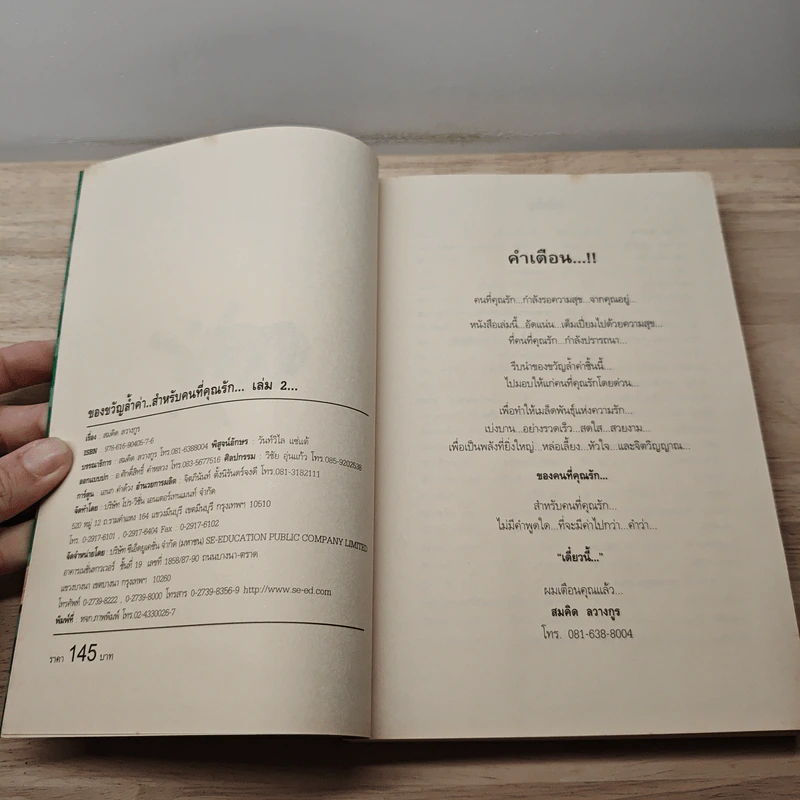 ของขวัญล้ำค่า..สำหรับคนที่คุณรัก... เล่ม 2...
เรื่อง : สมคิด ลวางกูร
ISBN : 978-616-90405-7-6
บรรณาธิการ : สมคิด ลวางกูร โทร.081-6388004 พิสูจน์อักษร : วันทวิไล แซ่แต้
ออกแบบปก : อ.ศักดิ์สิทธิ์ คำหลวง โทร.083-5677516 ศิลปกรรม : วิชัย อุ่นแก้ว โทร.085-9202538
การ์ตูน : เอนก คำด้วง อำนวยการผลิต : จิตภินันท์ ตั้งนิรันดร์จงดี โทร.081-3182111
จัดทำโดย : บริษัท โปร-วิชั่น เอนเตอร์เทนเมนท์ จำกัด
520 หมู่ 12 ถ.รามคำแหง 164 แขวงมีนบุรี เขตมีนบุรี กรุงเทพฯ 10510
โทร. 0-2917-6101 , 0-2917-6404 Fax : 0-2917-6102
จัดจำหน่ายโดย : บริษัท ซีเอ็ดยูเคชั่น จำกัด (มหาชน) SE-EDUCATION PUBLIC COMPANY LIMITED
อาคารเนชั่นทาวเวอร์ ชั้นที่ 19 เลขที่ 1858/87-90 ถนนบางนา-ตราด
แขวงบางนา เขตบางนา กรุงเทพฯ 10260
โทรศัพท์ 0-2739-8222 , 0-2739-8000 โทรสาร 0-2739-8356-9 http://www.se-ed.com
พิมพ์ที่ : หจก.ภาพพิมพ์ โทร.02-4330026-7
ราคา 145 บาท
คำเตือน...!!
คนที่คุณรัก...กำลังรอความสุข...จากคุณอยู่...
หนังสือเล่มนี้...อัดแน่น...เต็มเปี่ยมไปด้วยความสุข...
ที่คนที่คุณรัก...กำลังปรารถนา...
รีบนำของขวัญล้ำค่าชิ้นนี้...
ไปมอบให้แก่คนที่คุณรักโดยด่วน...
เพื่อทำให้เมล็ดพันธุ์แห่งความรัก...
เบ่งบาน...อย่างรวดเร็ว...สดใส...สวยงาม...
เพื่อเป็นพลังที่ยิ่งใหญ่...หล่อเลี้ยง...หัวใจ...และจิตวิญญาณ...
ของคนที่คุณรัก...
สำหรับคนที่คุณรัก...
ไม่มีคำพูดใด...ที่จะมีค่าไปกว่า...คำว่า...
"เดี๋ยวนี้..."
ผมเตือนคุณแล้ว...
สมคิด ลวางกูร
โทร. 081-638-8004